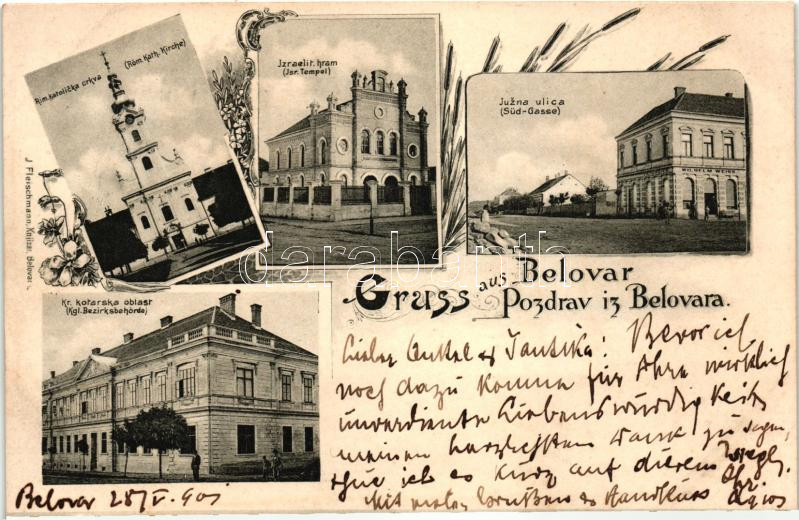 Rim. katolička crkva
(Röm. Kath. Kirche)
Izraelit. hram
(Isr. Tempel)
Južna ulica
(Süd-Gasse)
WILHELM WEISS
J. Fleischmann, Knjižar, Belovar.
darabanth
Gruss aus Belovar
Pozdrav iz Belovara.
Kr. kotarska oblast
(Kgl. Bezirksbehörde)
Lieber Onkel & Tantika! Bevor ich
noch dazu komme für Ihre wirklich
unverdiente Liebenswürdigkeit
meinen herzlichsten Dank zu sagen,
thue ich es kurz auf diesem
Ihr
Mit vielen Grüßen & Handkuss
Belovar 28/V. 901